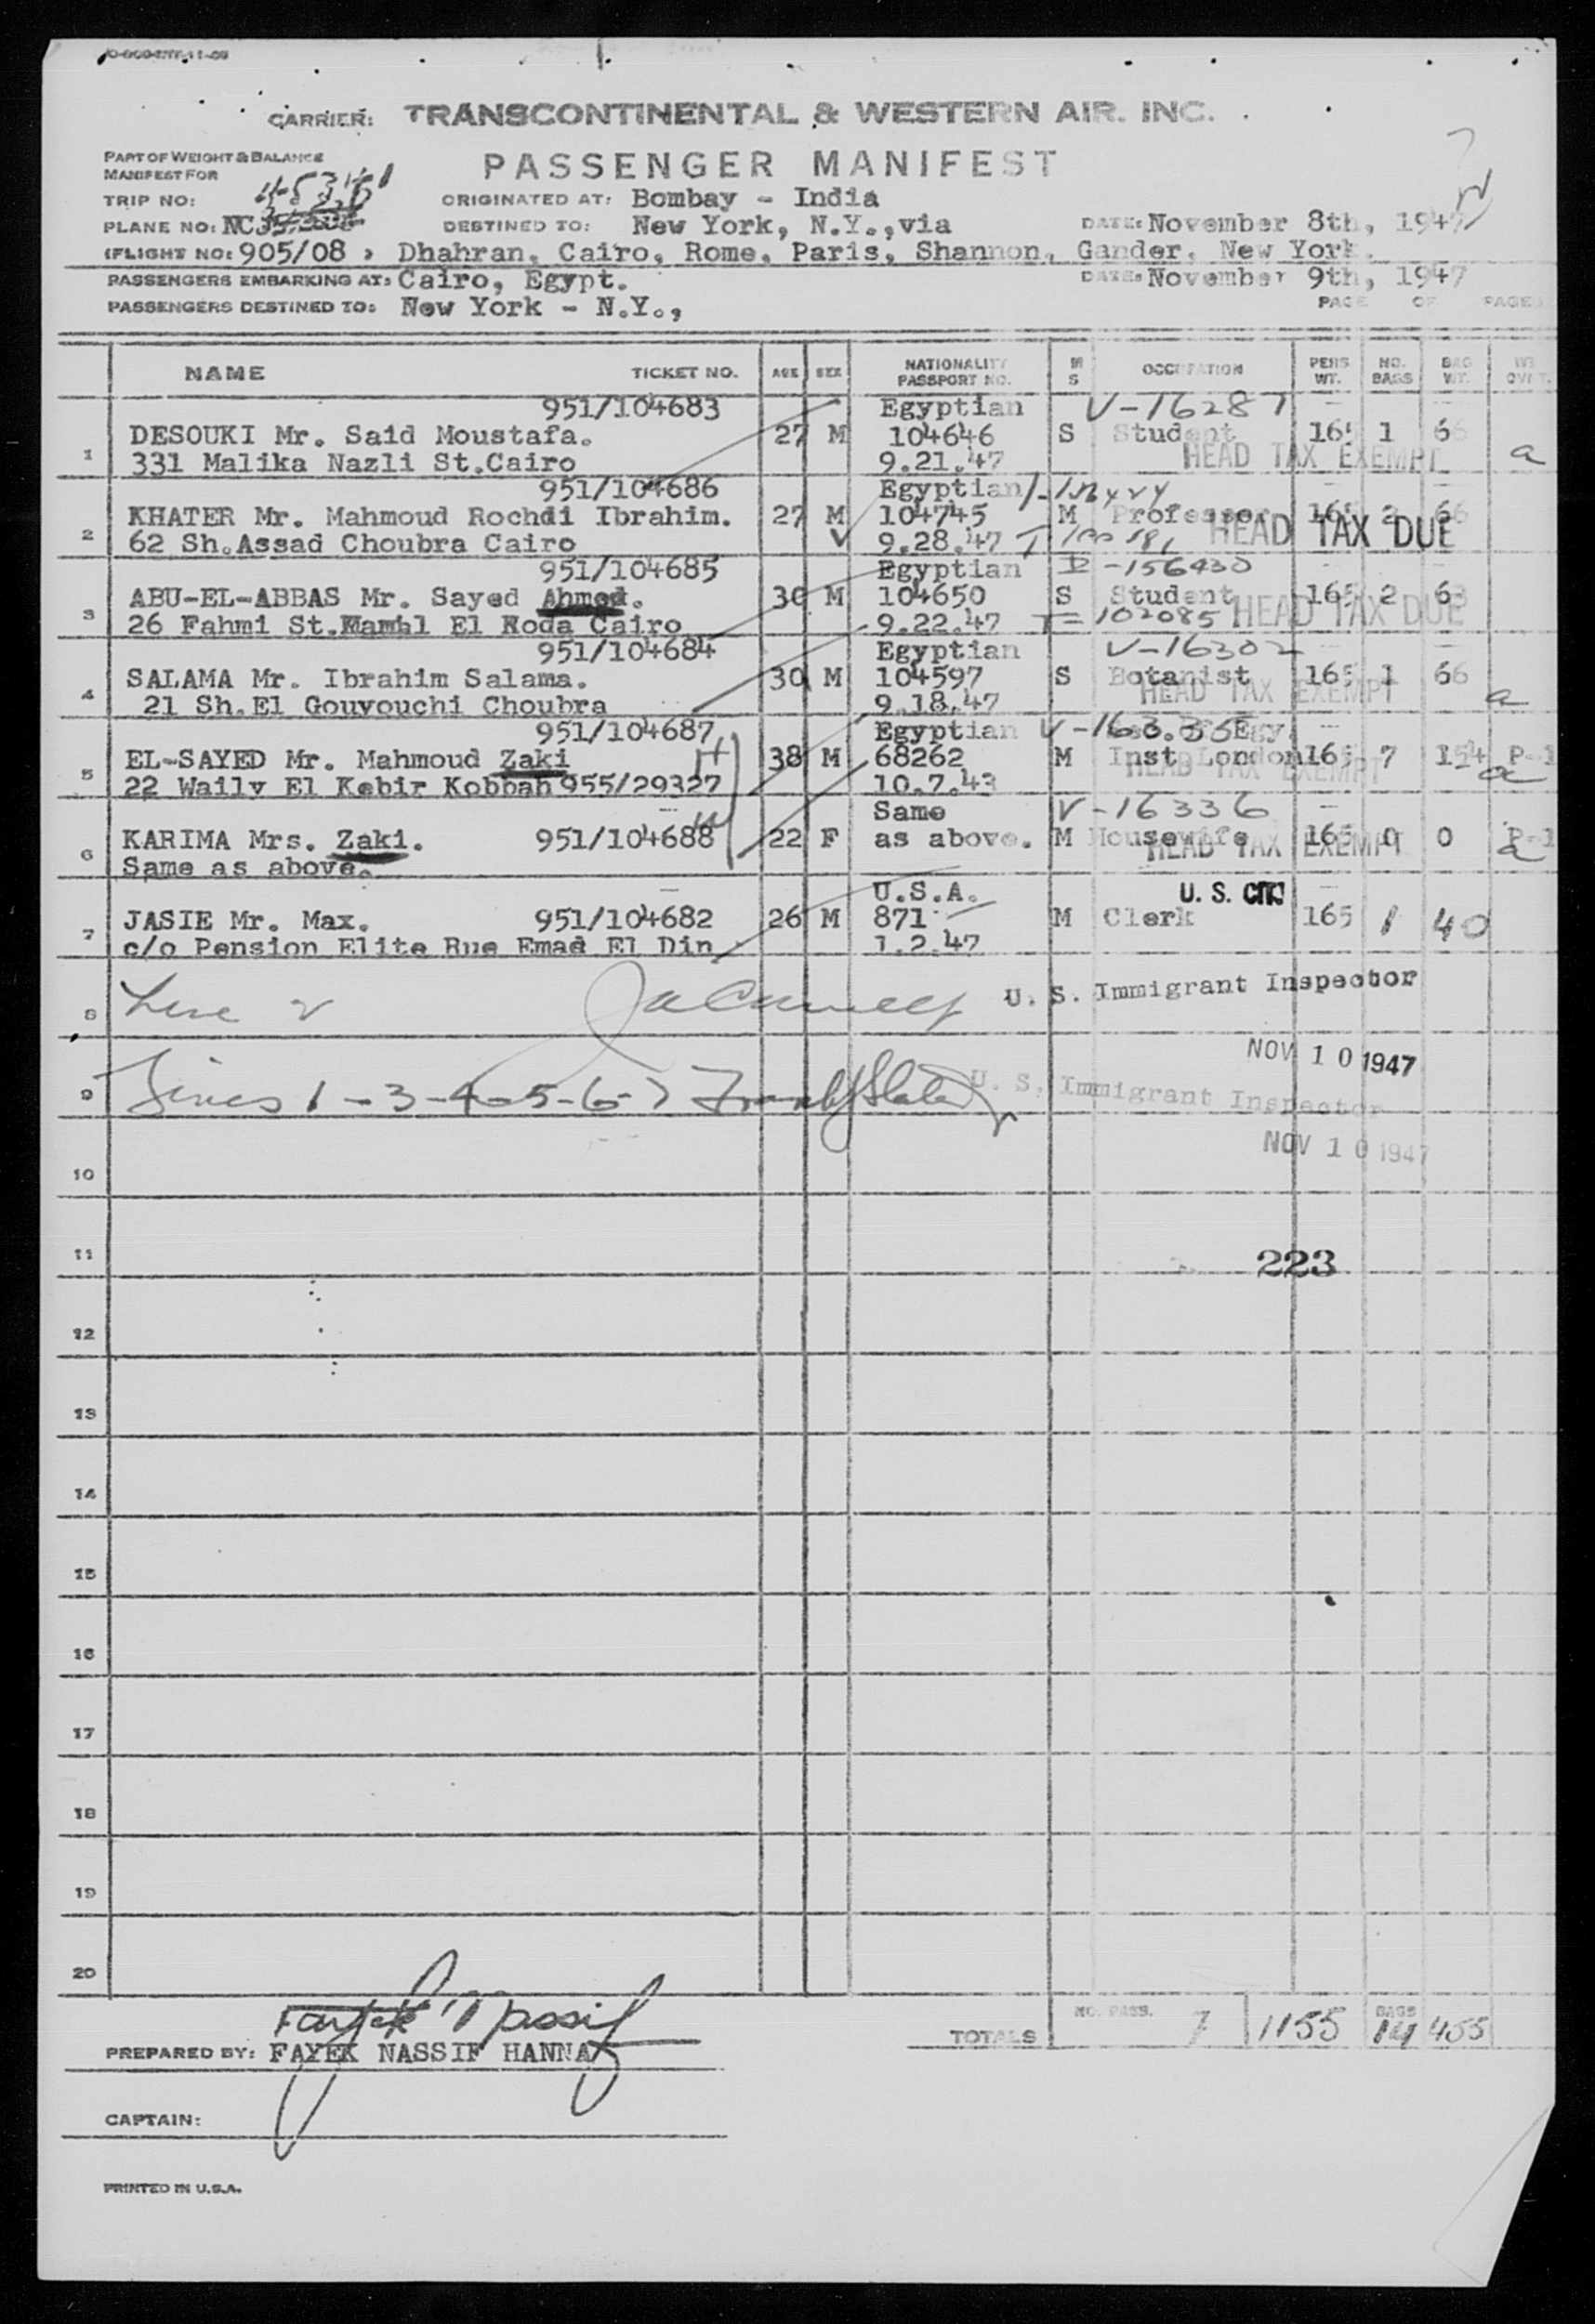 CARRIER: TRANSCONTINENTAL & WESTERN AIR. INC.
PART OF WEIGHT & BALANCE
MANIFEST FOR
PASSENGER MANIFEST
TRIP NO:
ORIGINATED AT: Bombay - India
PLANE NO: NC
DESTINED TO: New York, N.Y.,via
DATE: November 8th, 1947
(FLIGHT NO: 905/08 , Dhahran, Cairo, Rome, Paris, Shannon, Gander, New York.
PASSENGERS EMBARKING AT: Cairo, Egypt.
DATE: November 9th, 1947
PASSENGERS DESTINED TO: New York - N.Y.,
PAGE OF PAGES
NAME TICKET NO. AGE SEX NATIONALITY PASSPORT NO. M S OCCUPATION PERS WT. NO. BAGS BAG WT.
951/104683 Egyptian V-16287
1 DESOUKI Mr. Said Moustafa. 27 M 104646 S Student 165 1 66
331 Malika Nazli St.Cairo 9.21.47 HEAD TAX EXEMPT a
951/104686 Egyptian
2 KHATER Mr. Mahmoud Rochdi Ibrahim. 27 M 104745 M Professor 165 2 66
62 Sh.Assad Choubra Cairo 9.28.47 HEAD TAX DUE
951/104685 Egyptian -156430
3 ABU-EL-ABBAS Mr. Sayed Ahmed. 30 M 104650 S Student 165 2 63
26 Fahmi St. El Roda Cairo 9.22.47 T=102085 HEAD TAX DUE
951/104684 Egyptian V-16302
4 SALAMA Mr. Ibrahim Salama. 30 M 104597 S Botanist 165 1 66
21 Sh.El Gouyouchi Choubra 9.18.47 HEAD TAX EXEMPT a
951/104687 Egyptian V-16335 Egy.
5 EL-SAYED Mr. Mahmoud Zaki 38 M 68262 M Inst London 165 7 154 P-1
22 Waily El Kebir Kobbah 955/29327 10.7.43 HEAD TAX EXEMPT a
Same V-16336
6 KARIMA Mrs. Zaki. 951/104688 22 F as above. M Housewife 165 0 0 P-1
Same as above. HEAD TAX EXEMPT a
U.S.A. U. S. CIT.
7 JASIE Mr. Max. 951/104682 26 M 871 M Clerk 165 1 40
c/o Pension Elite Rue Emad El Din 1.2.47
8 Line 2 U. S. Immigrant Inspector
NOV 10 1947
9 Lines 1-3-4-5-6-7 U. S. Immigrant Inspector
NOV 10 1947
10
11 223
12
13
14
15
16
17
18
19
20
TOTALS NO. PASS. 7 1155 BAGS 14 455
PREPARED BY: FAYEK NASSIF HANNA
CAPTAIN:
PRINTED IN U.S.A.